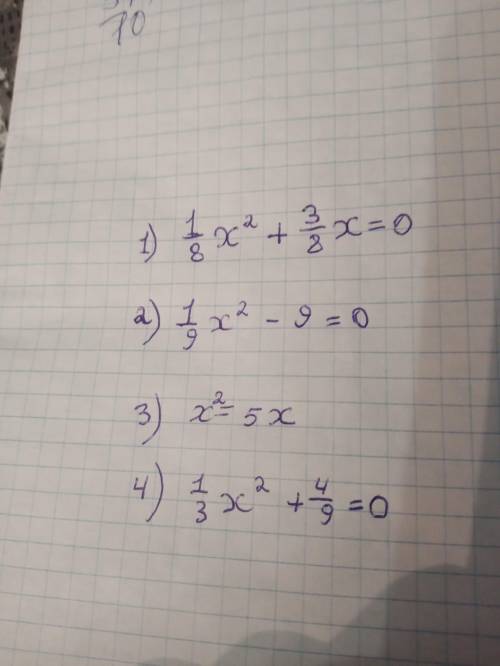 10
1) 1/8 x² + 3/8 x = 0
2) 1/9 x² - 9 = 0
3) x² = 5x
4) 1/3 x² + 4/9 = 0